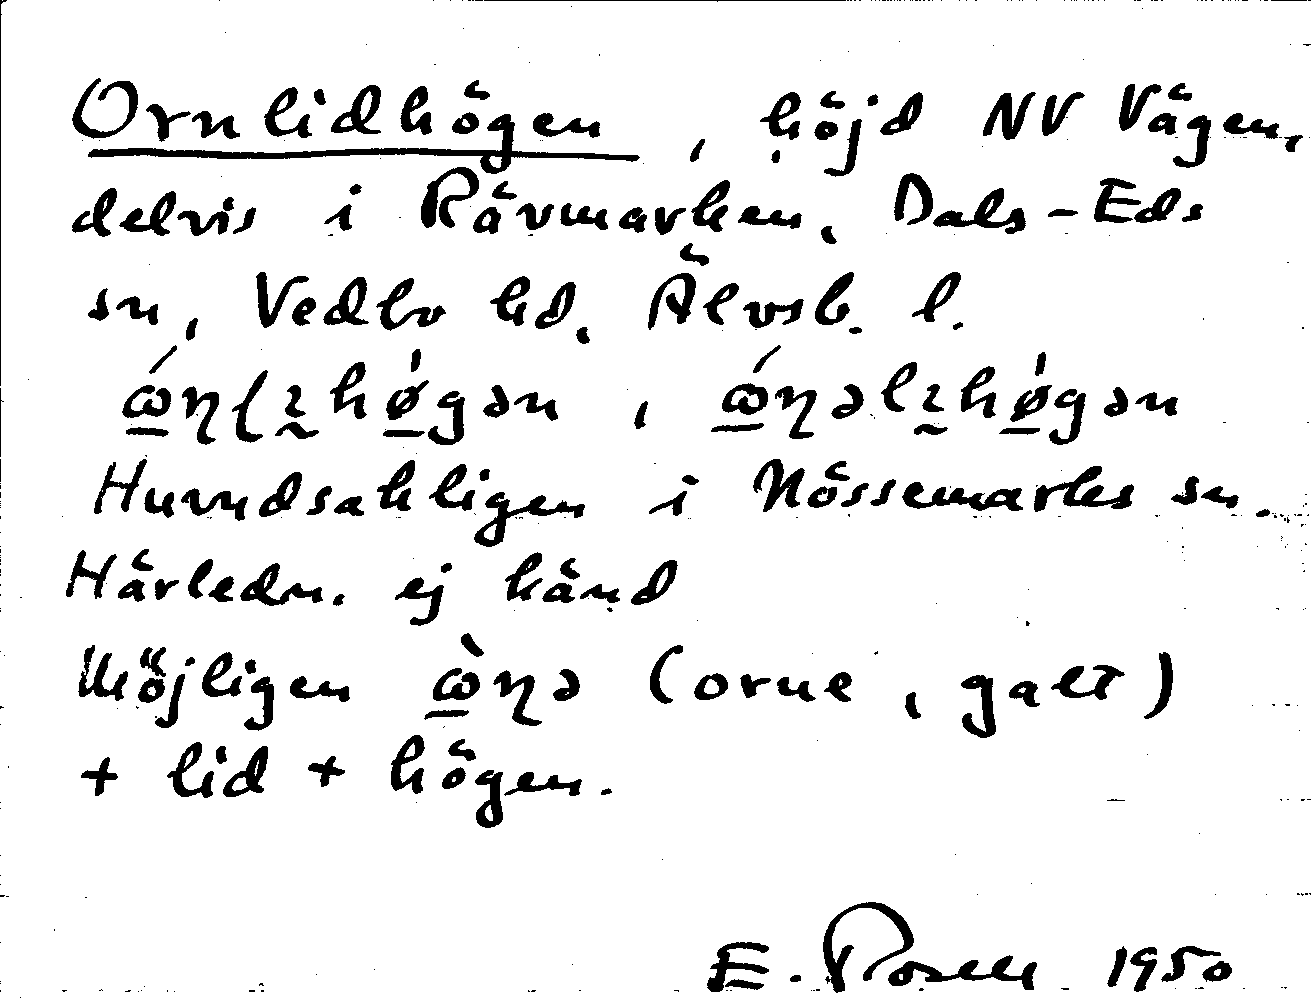 Ornlidhögen, höjd NV Vägen,
delvis i Rävmarken, Dals-Eds
sn, Vedbo hd, Älvsb. l.
Huvudsakligen i Nössemarks sn.
Härledn. ej känd
Möjligen (orne, galt)
+ lid + högen.
E. Rosell 1950